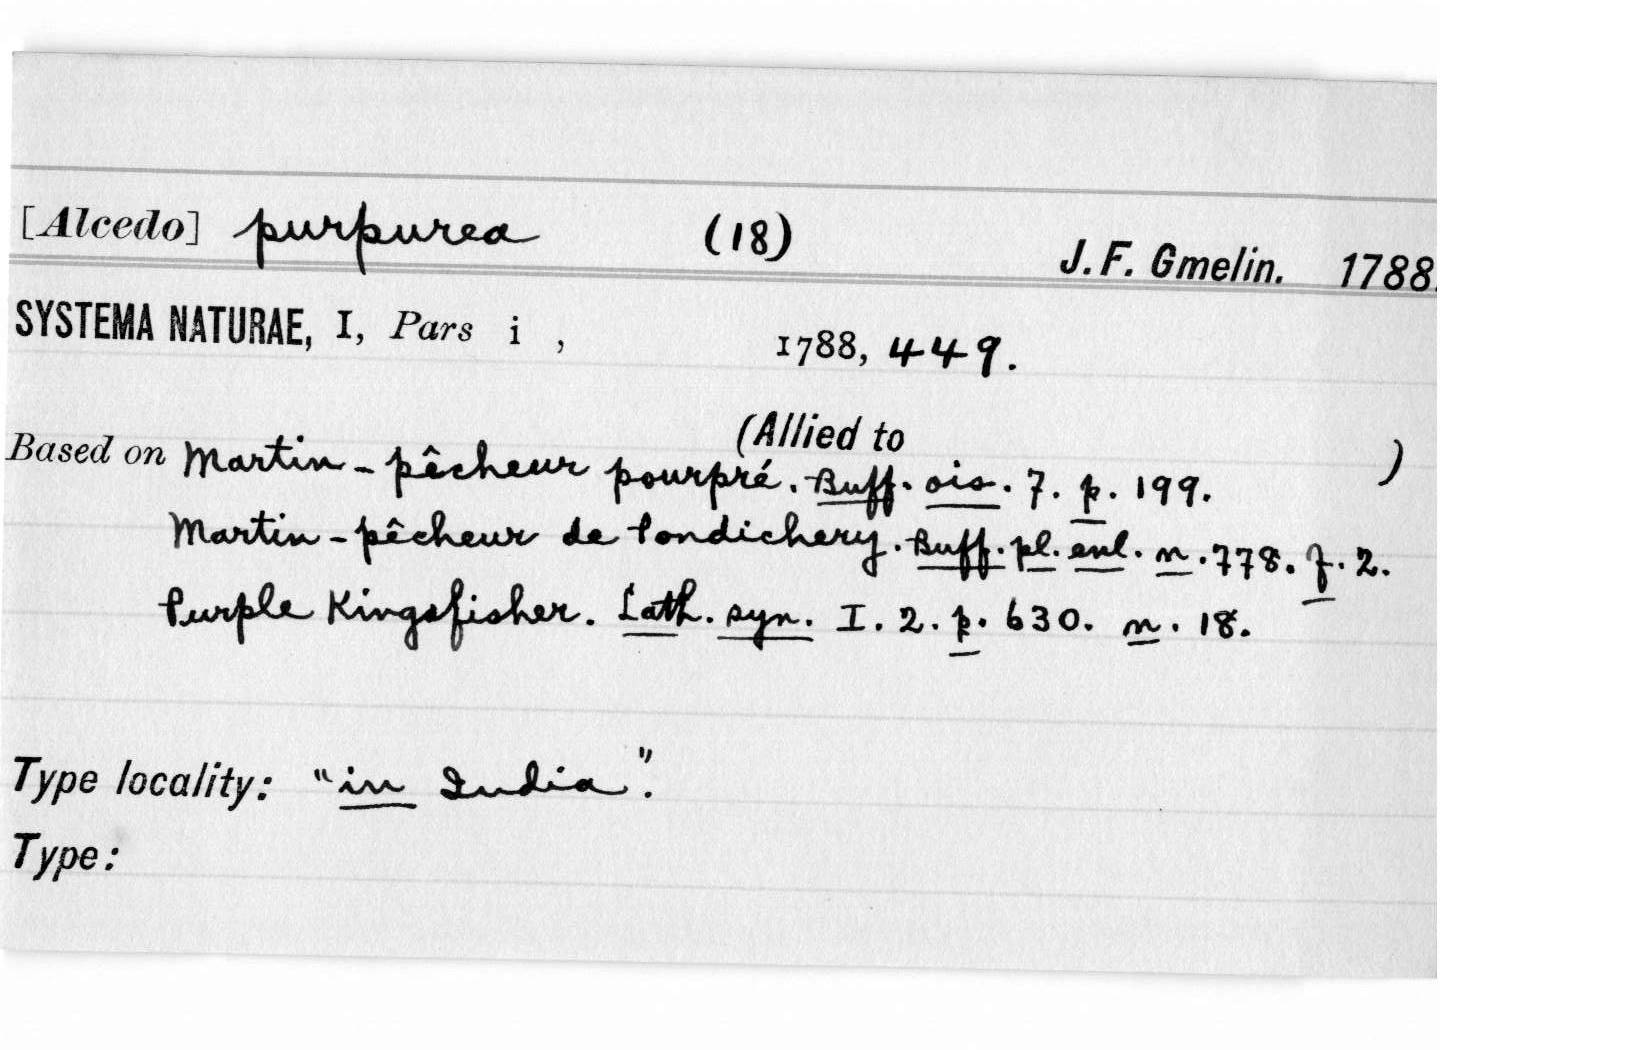 [Alcedo] purpurea (18) J. F. Gmelin. 1788.
SYSTEMA NATURAE, I, Pars i , 1788, 449.
(Allied to )
Based on Martin-pêcheur pourpré. Buff. ois. 7. p. 199.
Martin-pêcheur de Pondichery. Buff. pl. enl. n. 778. f. 2.
Purple Kingsfisher. Lath. syn. I. 2. p. 630. n. 18.
Type locality: "in India".
Type: